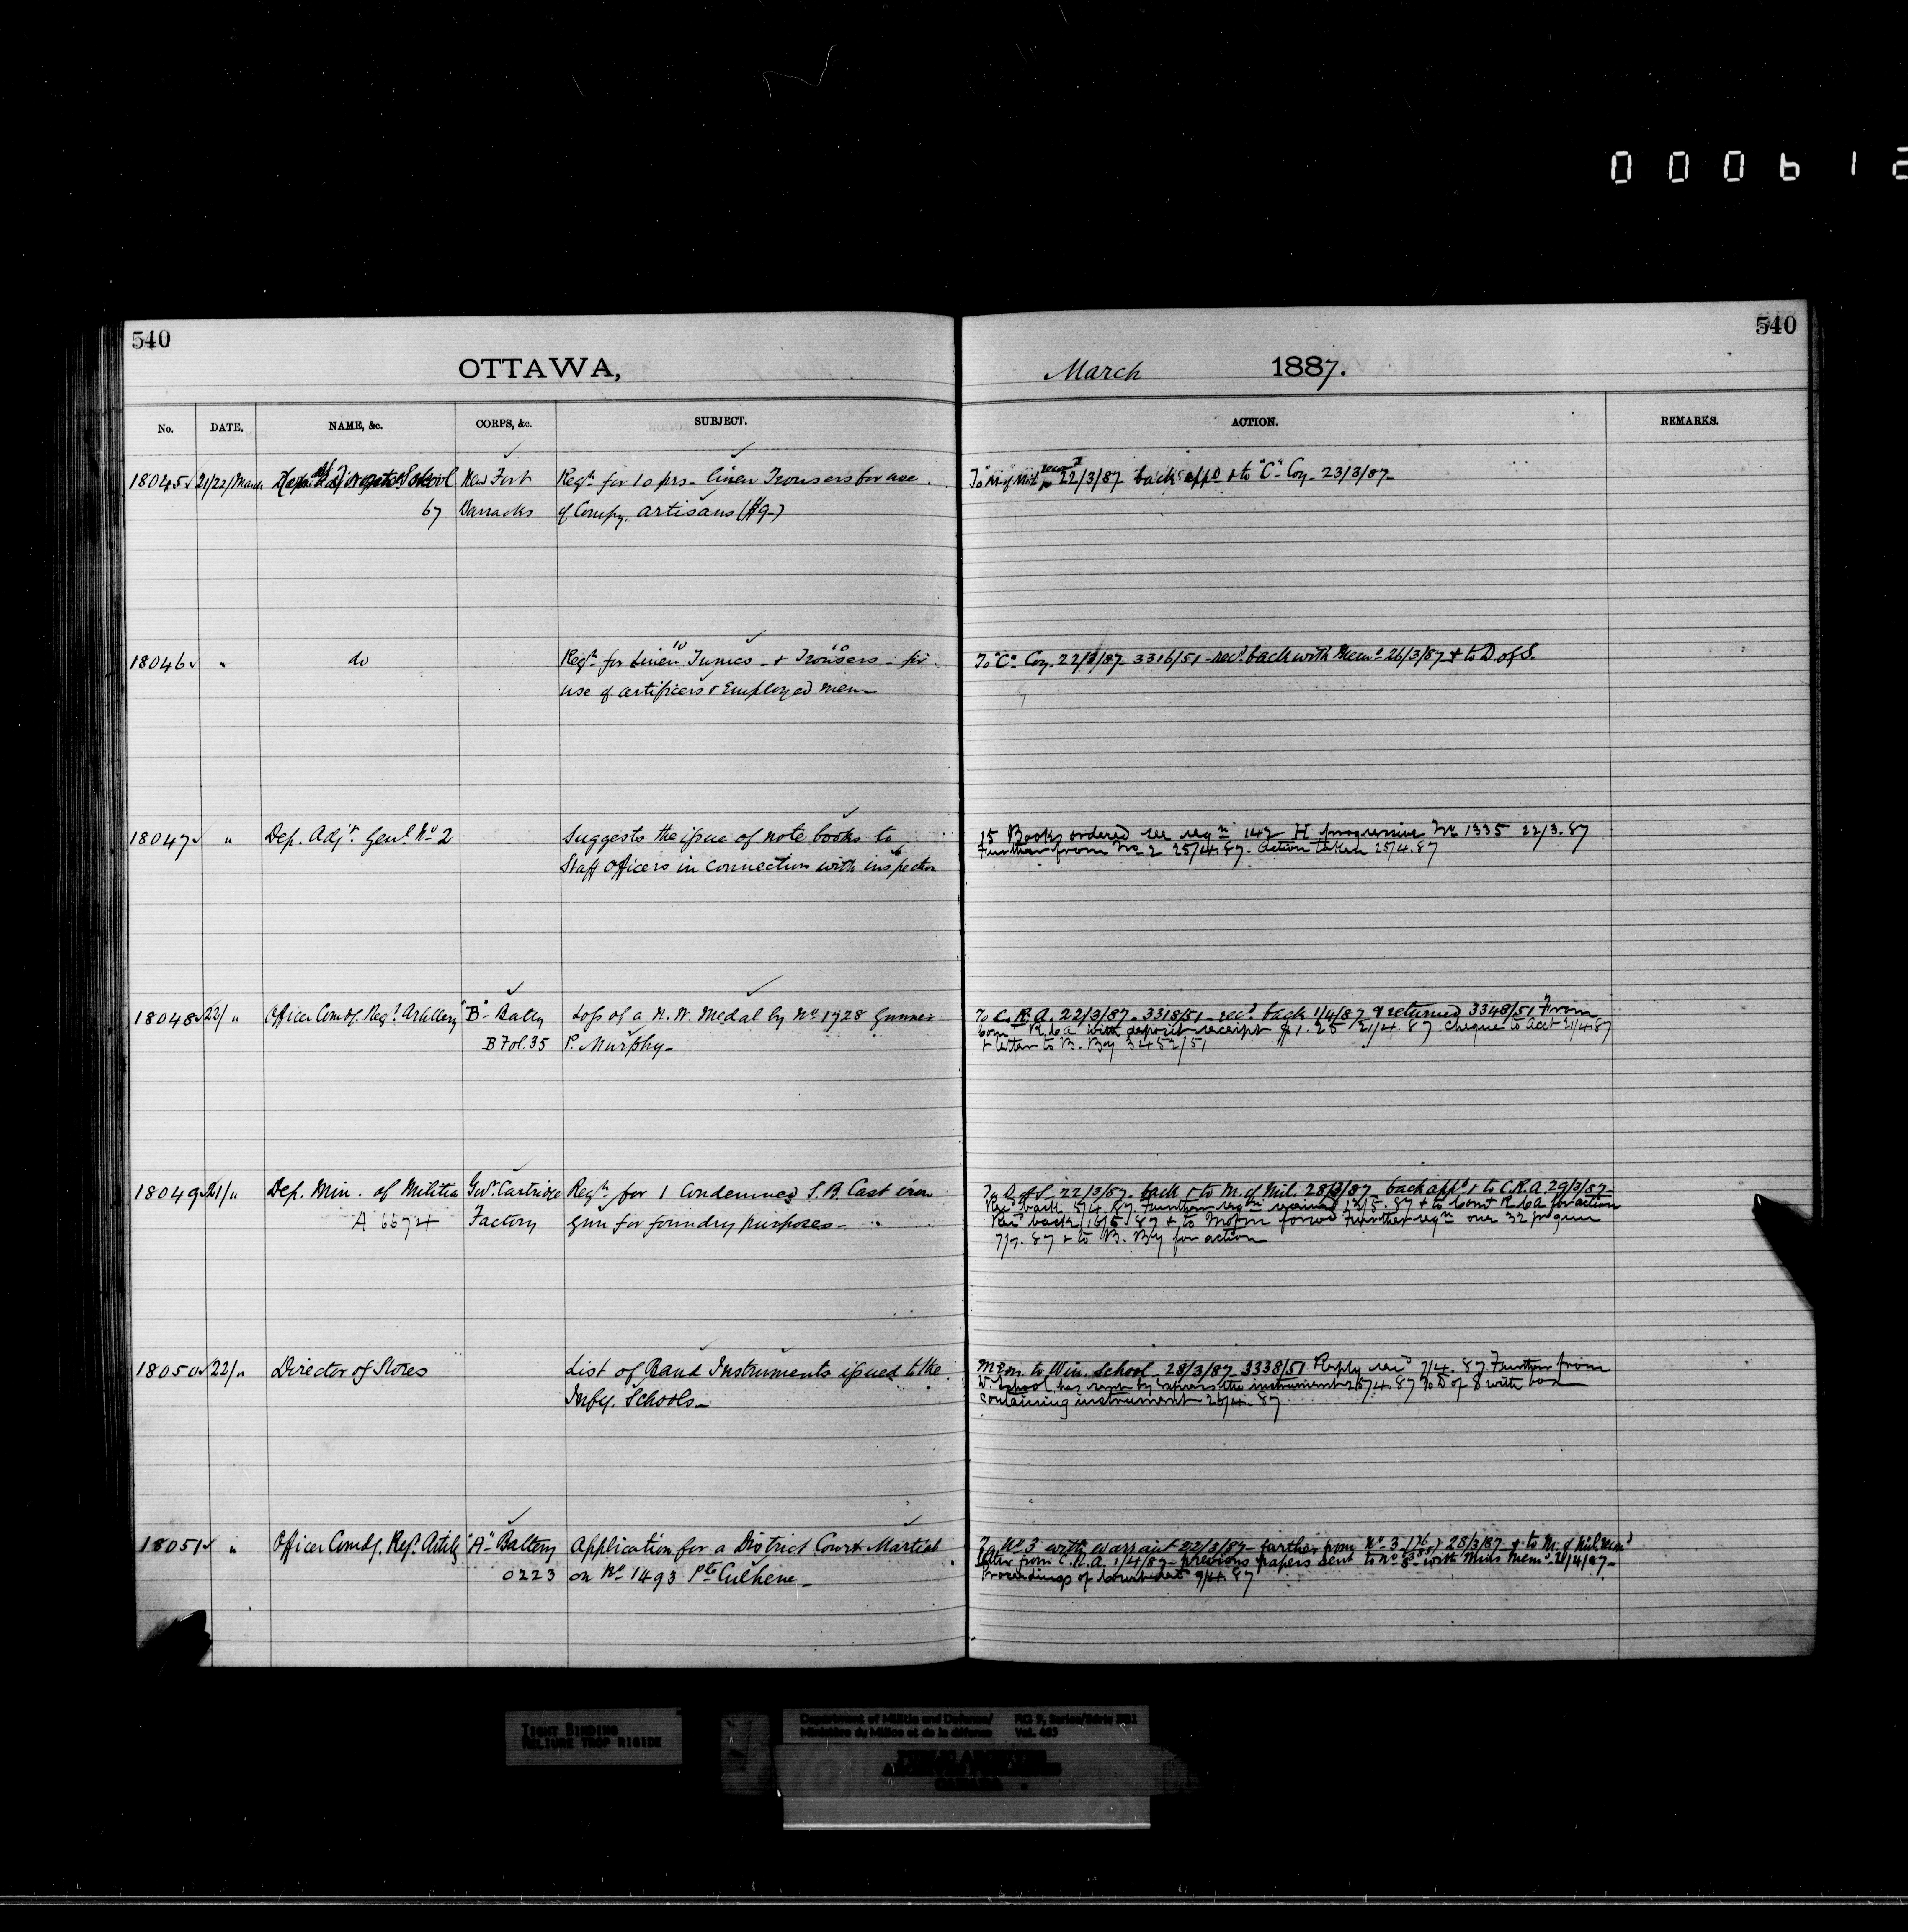 000612
540
540
OTTAWA,
March 1887.
No. DATE. NAME, &c. CORPS, &c. SUBJECT. ACTION. REMARKS.
18045 21/22/March School New Fort Reqn for 10 prs. linen Trousers for use
67 Barracks of Compy. artisans
22/3/87 back appd & to "C" Coy. 23/3/87
18046 " do Reqn for linen 10 Tunics & 10 Trousers for
use of artificers & Employed men
To "C" Coy. 22/3/87 3316/51 recd. back with Memo 26/3/87 & to D of S.
18047 " Dep. Adjt. Genl. No 2 Suggests the issue of note books to
Staff Officers in connection with inspection
15 Books ordered reqn 142 H progressive No 1335 22/3.87
Further from No 2 25/4.87. Action taken 25/4.87
18048 22/ " Officer Comdg. Regt. Artillery "B" Batty Loss of a N.W. Medal by No 1728 Gunner
B Fol. 35 P. Murphy
To C.R.A. 22/3/87 3318/51 recd. back 1/4/87 & returned 3348/51 From
Comt RCA with deposit receipt $1.25 21/4.87 Cheque to Acct 21/4.87
& letter to B. Bty 3452/51
18049 21/ " Dep. Min. of Militia Govt. Cartridge Reqn for 1 Condemned S.B. Cast iron
A 6674 Factory gun for foundry purposes
To D of S 22/3/87 back & to M. of Mil. 28/3/87 back appd & to C.R.A. 29/3/87
Recd back 5/4.87. Further reqn received 13/5.87 & to Comt RCA for action
Recd back 16/5.87 & to Further reqn one 32 pr gun
7/7.87 & to B. Bty for action
18050 22/ " Director of Stores List of Band Instruments issued to the
Infy. Schools
Mem. to Win. School 28/3/87 3338/51 Reply recd 7/4.87. Further from
W. School has sent by express the instrument 26/4.87 To D of S with box
containing instrument 26/4.87
18051 " Officer Comdg. Regt. Artily "A" Battery Application for a District Court Martial
0223 on No 1493 Pte Culhene
To No 3 with warrant 22/3/87 further from No 3 28/3/87 & to M. of Mil.
letter from C.R.A. 1/4/87 previous papers sent to No 3 with Mins Memo 2/4/87
Proceedings of 9/4.87
TIGHT BINDING
RELIURE TROP RIGIDE
Department of Militia and Defence/ RG 9, Series/Série IIB1
Ministère du Milice et de la défense Vol. 485
PUBLIC ARCHIVES
ARCHIVES PUBLIQUES
CANADA